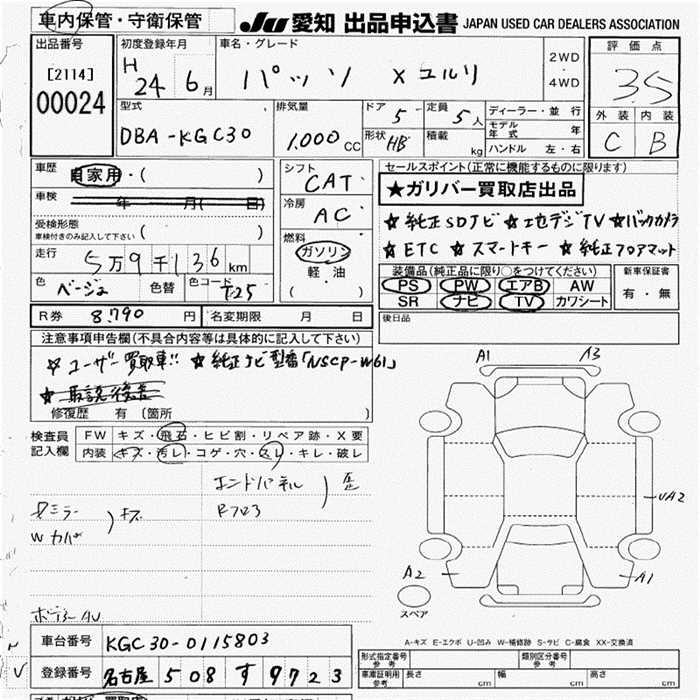 車内保管・守衛保管
JU 愛知 出品申込書 JAPAN USED CAR DEALERS ASSOCIATION
出品番号 初度登録年月 車名・グレード 2WD・4WD 評価点
[2114] H 24 6月 パッソ X ユルリ 3.5
00024
型式 排気量 ドア 5 定員 5人 ディーラー・並行 外装 内装
DBA-KGC30 1.000CC 形状 HB 積載 kg モデル年式 年 C B
ハンドル 左・右
車歴 自家用・( ) シフト CAT セールスポイント(正常に機能するものに限ります)
車検 年 月( 日) 冷房 AC ★ガリバー買取店出品
受検形態 ( )
車検付きのみ記入して下さい
☆純正SDナビ ☆バックカメラ
走行 5万9千136km 燃料 ガソリン ☆ETC ☆スマートキー ☆純正フロアマット
軽油
( )
色 ベージュ 色替 色コード T25 装備品(純正品に限り○をつけてください) 新車保証書
PS PW エアB AW 有・無
SR ナビ TV カワシート
R券 8,790円 名変期限 月 日 後日品
注意事項申告欄(不具合内容等は具体的に記入して下さい)
☆ユーザー買取車!! ☆純正ナビ型番「NSCP-W61」
修復歴 有 (箇所 )
検査員記入欄 FW キズ・飛石・ヒビ割・リペア跡・X要
内装 キズ・汚レ・コゲ・穴・スレ・キレ・破レ
A1 A3
エンドパネル
ミラー
W カバー キズ
UA2
A2 A1
スペア
A-キズ E-エクボ U-凹み W-補修跡 S-サビ C-腐食 XX-交換済
車台番号 KGC30-0115803
登録番号 名古屋 508 す 9723
型式指定番号 参考 類別区分番号 参考
車庫証明用 参考 長さ cm 幅 cm 高さ cm